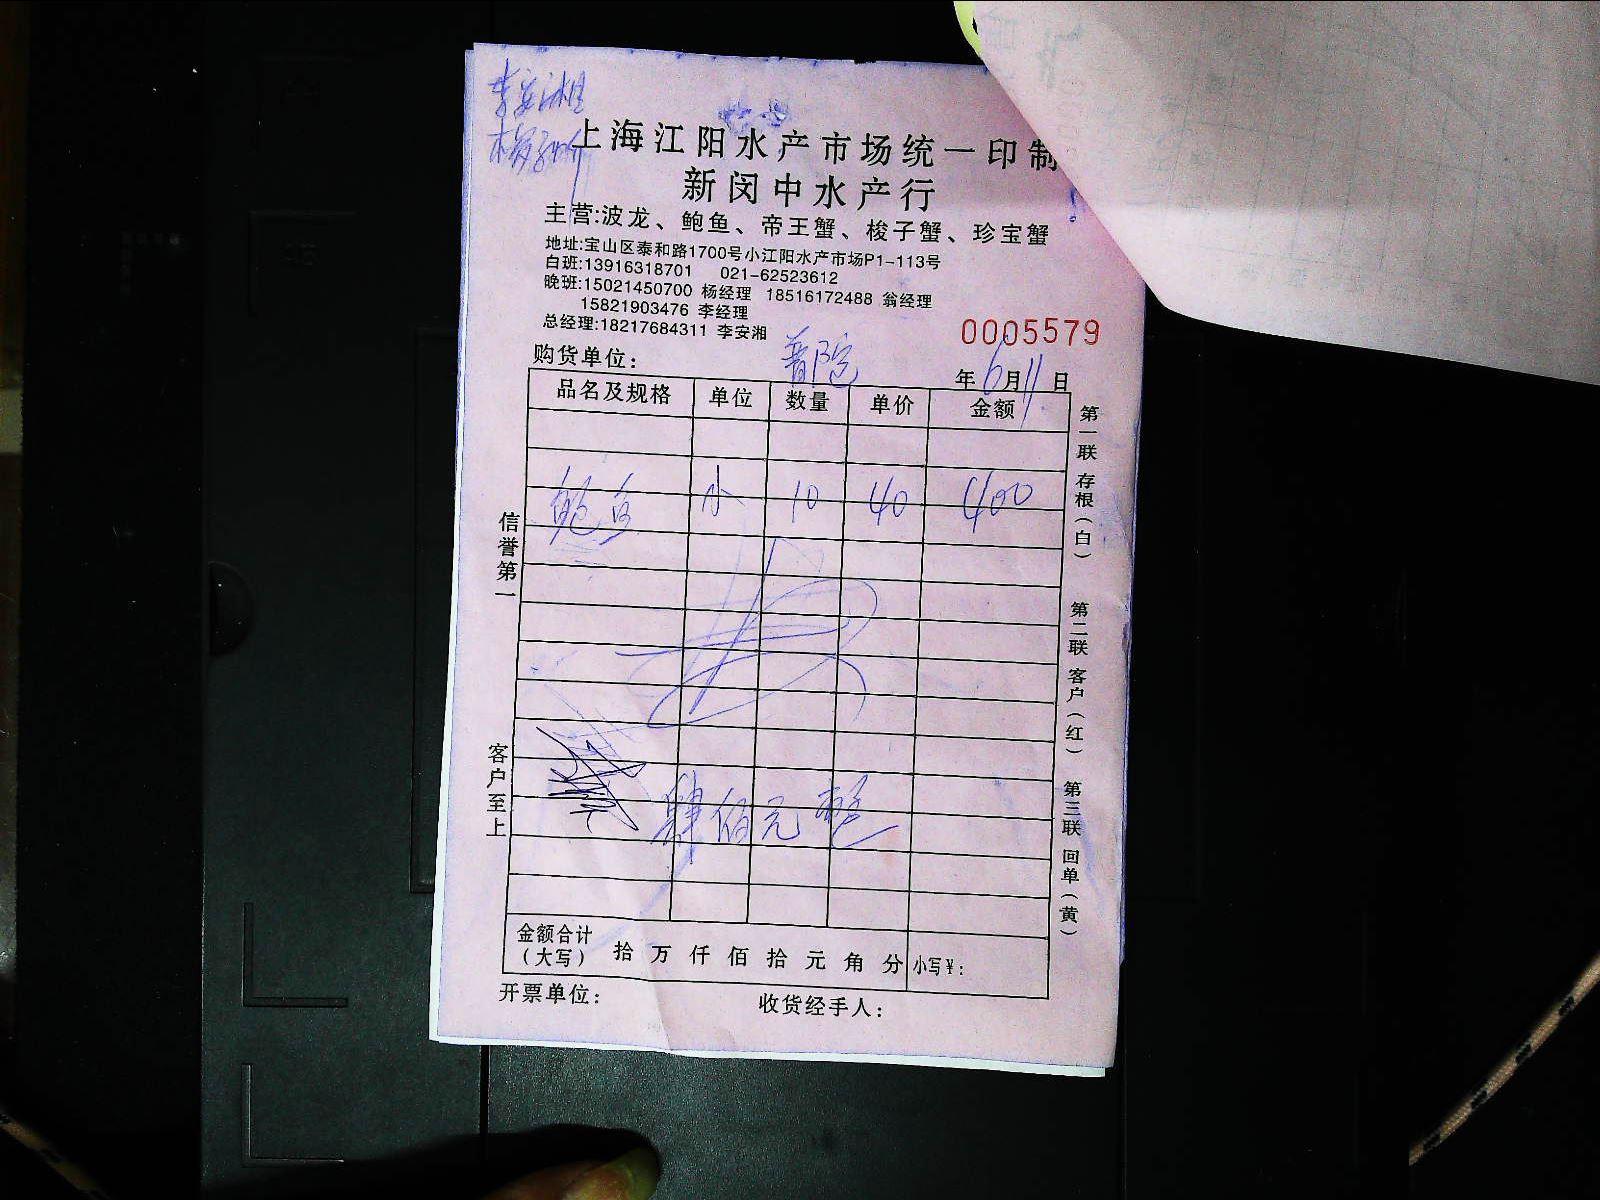 李安湘
上海江阳水产市场统一印制
新闵中水产行
主营:波龙、鲍鱼、帝王蟹、梭子蟹、珍宝蟹
地址:宝山区泰和路1700号小江阳水产市场P1-113号
白班:13916318701 021-62523612
晚班:15021450700 杨经理 18516172488 翁经理
15821903476 李经理
总经理:18217684311 李安湘
0005579
购货单位: 普陀
年 6月11日
品名及规格 单位 数量 单价 金额
鲍鱼 小 10 40 400
肆佰元整
金额合计
(大写) 拾 万 仟 佰 拾 元 角 分 小写¥:
开票单位: 收货经手人:
信誉第一
客户至上
第一联 存根(白)
第二联 客户(红)
第三联 回单(黄)